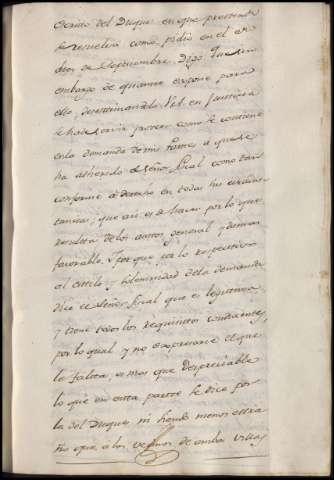 Escrito del Duque en que pretende
se resuelva como pidio en el
de Septiembre. Digo que sin
embargo de quanto expone para
ello, desestimandolo V.S. en Justicia
se ha de servir prover como se contiene
en la demanda de mis partes a que se
ha adherido el señor fiscal como tan
conforme a derecho en todas sus circuns
tancias; que asi es de hacer por lo que
resulta de los autos, general, y demas
favorable. Y por que por lo respectivo
al estilo, y solemnidad de la demanda
dice el Señor fiscal que es legitima
y tiene todos los requisitos
por lo qual y no expresarse el que
le falta, es mas que despreciable
lo que en esta parte se dice por
la del Duque; ni
que a los vecinos de ambas villas